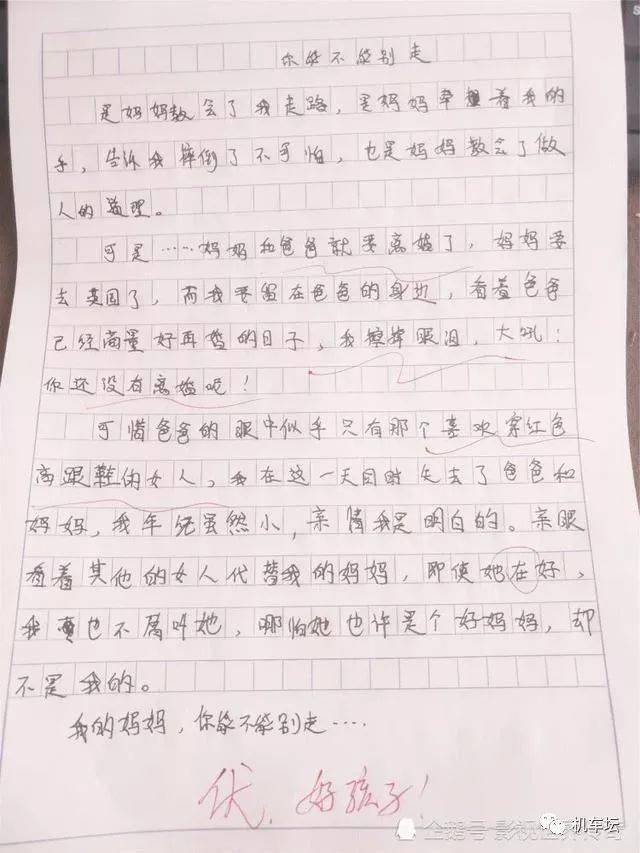 你能不能别走
是妈妈教会了我走路，是妈妈牵着我的
手，告诉我摔倒了不可怕，也是妈妈教会了做
人的道理。
可是……妈妈和爸爸就要离婚了，妈妈要
去英国了，而我要留在爸爸的身边，看着爸爸
已经商量好再婚的日子，我擦掉眼泪，大吼：
你还没有离婚呢！
可惜爸爸的眼中似乎只有那个喜欢穿红色
高跟鞋的女人。我在这一天同时失去了爸爸和
妈妈，我年纪虽然小，亲情我是明白的。亲眼
看着其他的女人代替我的妈妈，即使她在好，
我也不愿叫她，哪怕她也许是个好妈妈，却
不是我的。
我的妈妈，你能不能别走……
优，好孩子！
企鹅号
机车坛